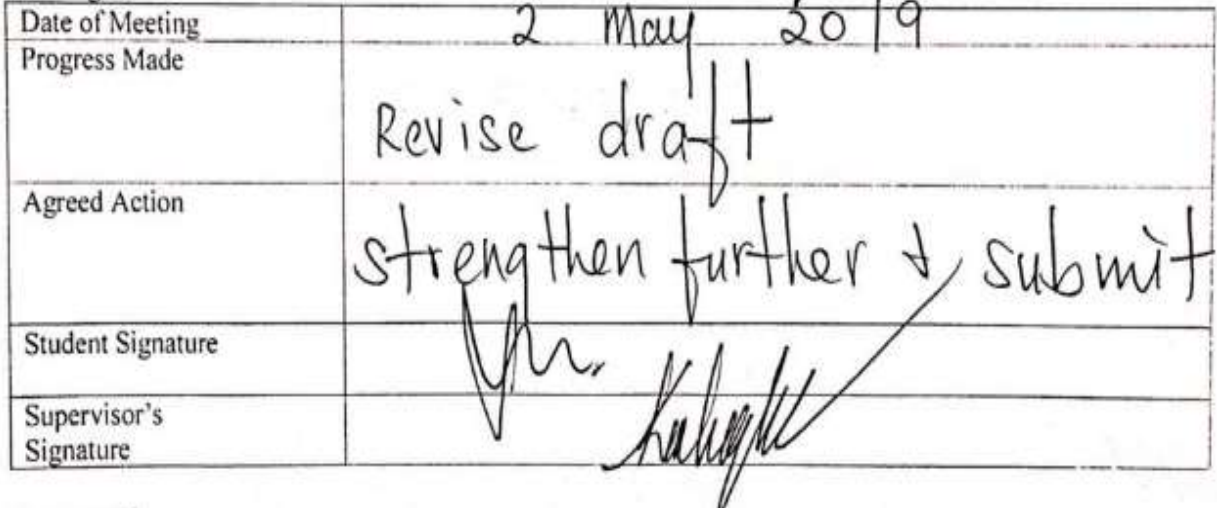 Date of Meeting 2 May 2019
Progress Made
Revise draft
Agreed Action
strengthen further & submit
Student Signature
Supervisor's
Signature